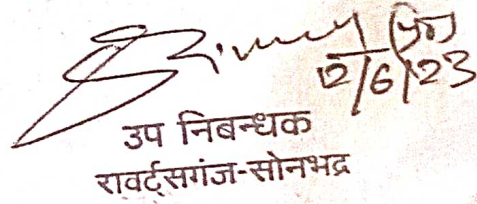 12/6/23
उप निबन्धक
रावर्ट्सगंज-सोनभद्र